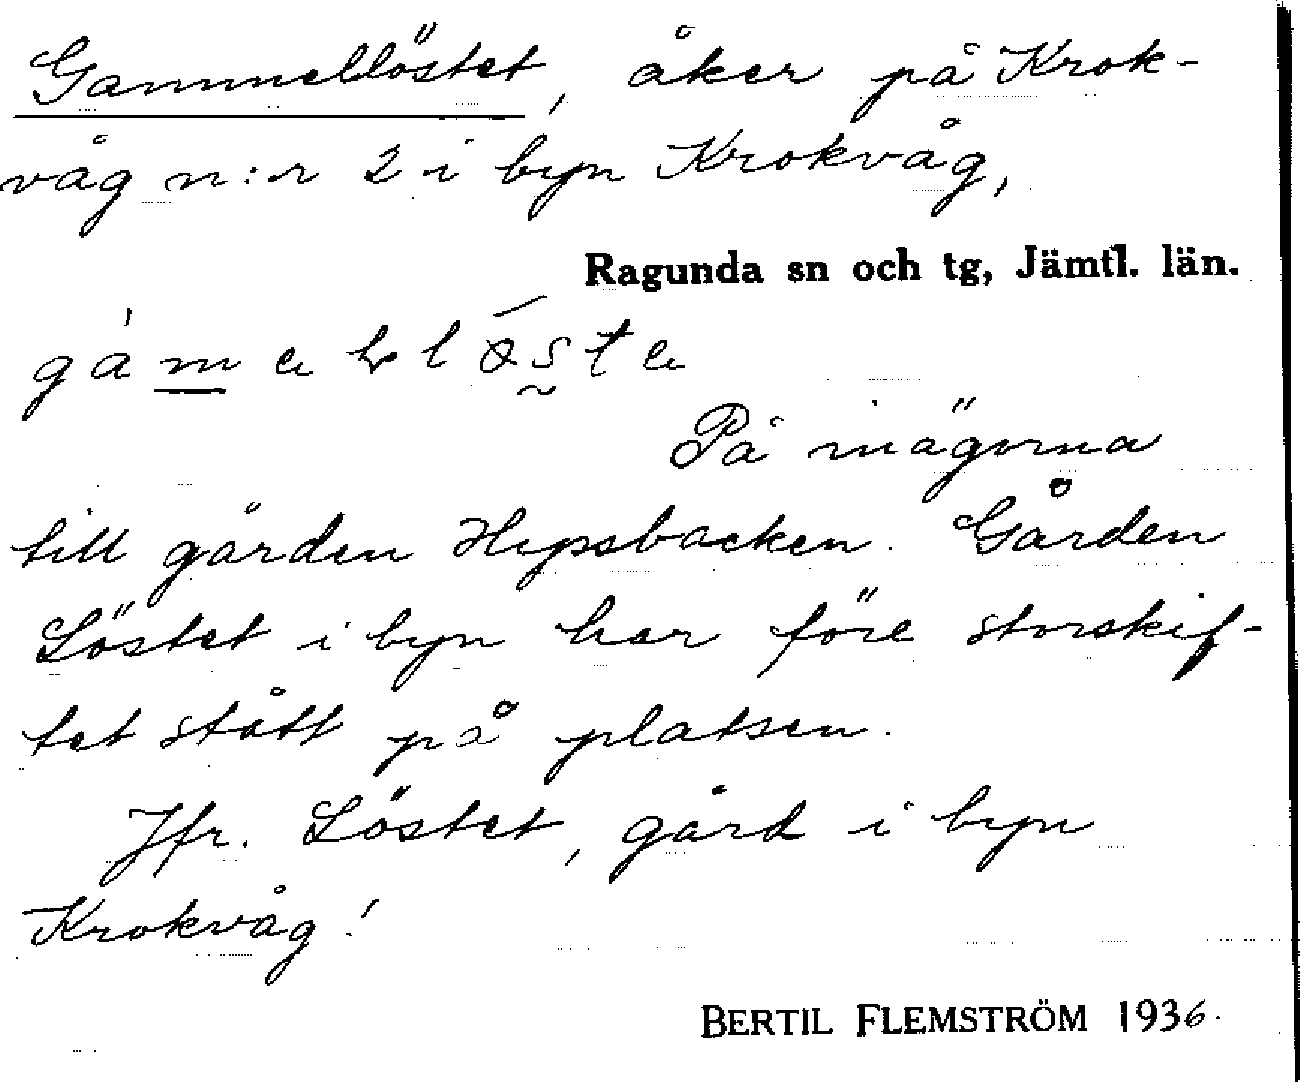 Gammellöstet, åker på Krok-
våg n:r 2 i byn Krokvåg,
Ragunda sn och tg, Jämtl. län.
På inägorna
till gården Hypsbacken. Gården
Löstet i byn har före storskif-
tet stått på platsen.
Jfr. Löstet, gård i byn
Krokvåg!
BERTIL FLEMSTRÖM 1936.